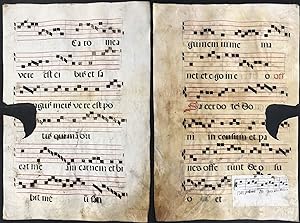 Caro mea
vere est ci bus et sa
guis meus vere est po
tus qui ma
eat me in carnem et bi
bit me
guinem in me ma
net et e go in e o
Sa cer do tes Do
mi in censum et pa
nes offe runt de o
et